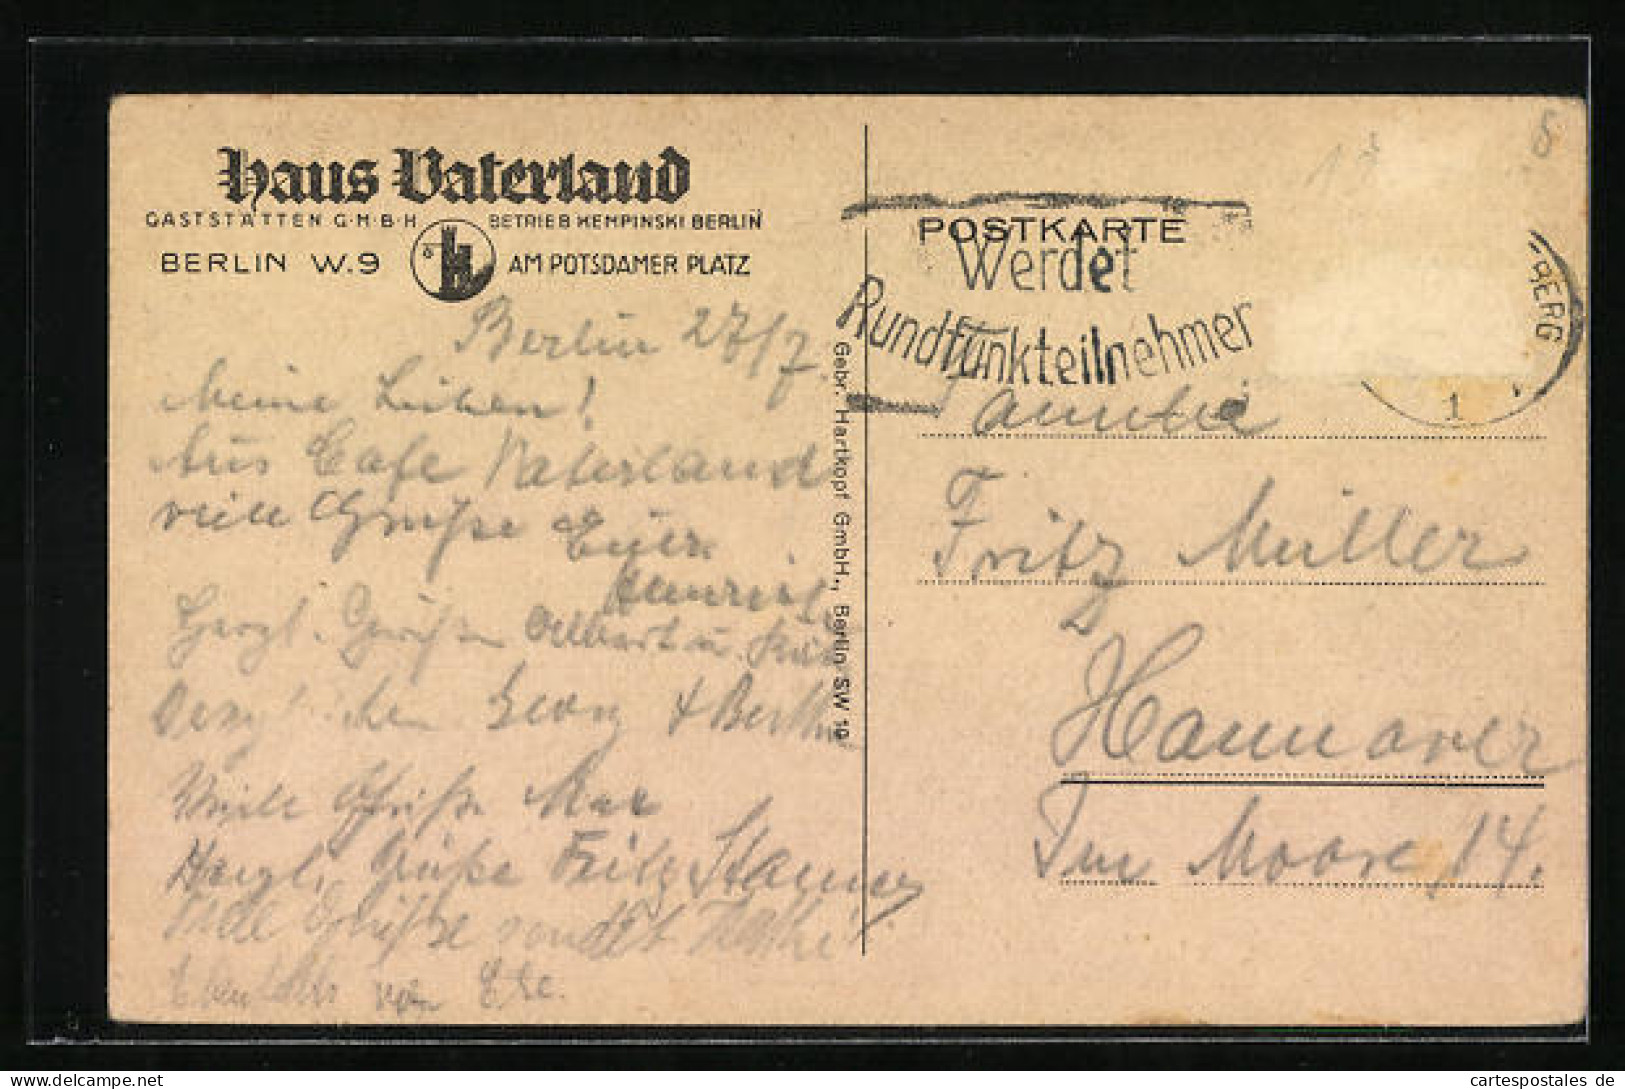 Haus Vaterland
GASTSTÄTTEN G·M·B·H BETRIEB KEMPINSKI BERLIN
BERLIN W.9 AM POTSDAMER PLATZ
Berlin 27/7.
Meine Lieben!
Aus Cafe Vaterland
viele Grüße Euer
Heinrich
Herzl. Grüße u.
Georg + Bertha
Viele Grüße Max
Herzl. Grüße Fritz
Viele Grüße sendet
von
Gebr. Hartkopf GmbH., Berlin SW 19
POSTKARTE
Werdet
Rundfunkteilnehmer
BERG
1
Familie
Fritz Müller
Hannover
Im Moore 14.
cartespostales de